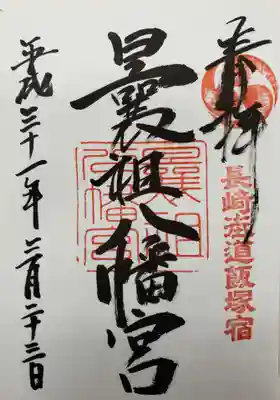 奉拝
長崎街道飯塚宿
曩祖八幡宮
曩祖八幡宮
平成三十一年二月二十三日